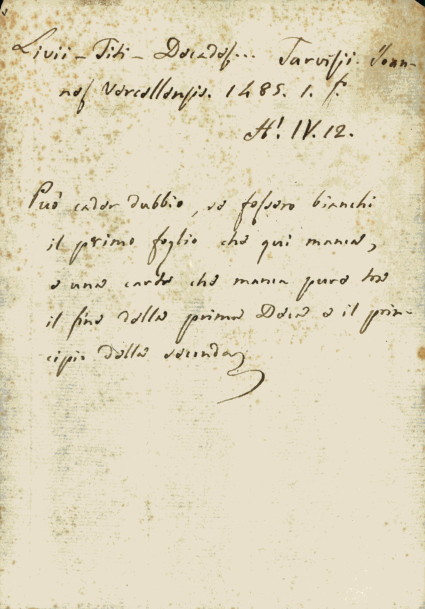 Livii - Titi - Decades... Tarvisii. Joan-
nes Vercellensis. 1485. 1. f.
A! IV. 12.
Può cader dubbio, se fossero bianchi
il primo foglio che qui manca,
e una carta che manca pure tra
il fine della prima Deca e il prin-
cipio della seconda